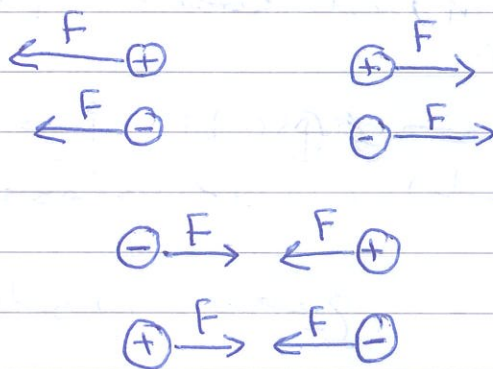 F + + F
F - - F
- F F +
+ F F -